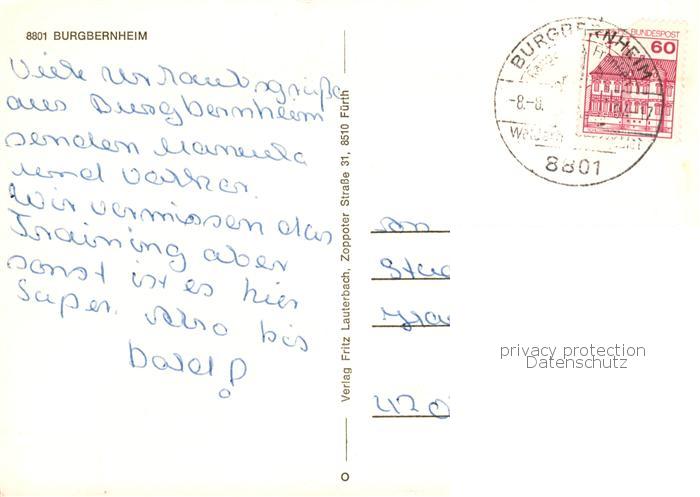 8801 BURGBERNHEIM
Viele Urlaubsgrüße
aus Burgbernheim
senden Manuela
und Volker.
Wir vermissen das
Training aber
sonst ist es hier
Super. Also bis
bald!
Verlag Fritz Lauterbach, Zoppoter Straße 31, 8510 Fürth
BURGBERNHEIM
-8.-8.
17
8801
BUNDESPOST
60
An
privacy protection
Datenschutz